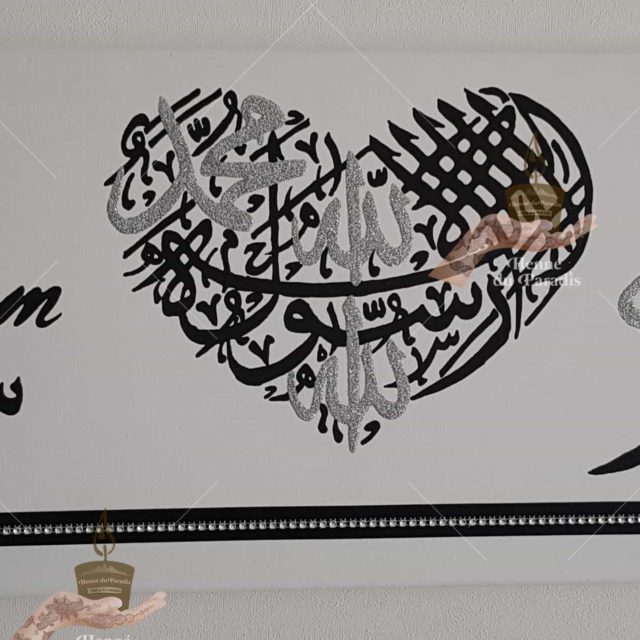 لا إله إلا الله
محمد رسول الله
m
Henné
du Paradis
Henné du Paradis
Henné